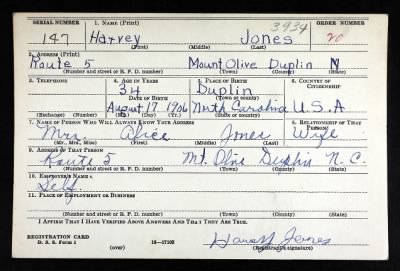 SERIAL NUMBER 1. NAME (Print) 3934 ORDER NUMBER
147 Harvey Jones 20
(First) (Middle) (Last)
2. ADDRESS (Print)
Route 5 Mount Olive Duplin N
(Number and street or R. F. D. number) (Town) (County) (State)
3. TELEPHONE 4. AGE IN YEARS 5. PLACE OF BIRTH 6. COUNTRY OF CITIZENSHIP
34 Duplin
DATE OF BIRTH (Town or county)
August 17 1906 North Carolina U.S.A
(Exchange) (Number) (Mo.) (Day) (Yr.) (State or country)
7. NAME OF PERSON WHO WILL ALWAYS KNOW YOUR ADDRESS 8. RELATIONSHIP OF THAT PERSON
Mrs. Alice Jones Wife
(Mr., Mrs., Miss) (First) (Middle) (Last)
9. ADDRESS OF THAT PERSON
Route 5 Mt. Olive Duplin N. C.
(Number and street or R. F. D. number) (Town) (County) (State)
10. EMPLOYER'S NAME
Self.
11. PLACE OF EMPLOYMENT OR BUSINESS
(Number and street or R. F. D. number) (Town) (County) (State)
I AFFIRM THAT I HAVE VERIFIED ABOVE ANSWERS AND THAT THEY ARE TRUE.
REGISTRATION CARD
D. S. S. Form 1 16—17105 Harvey Jones
(over) (Registrant's signature)